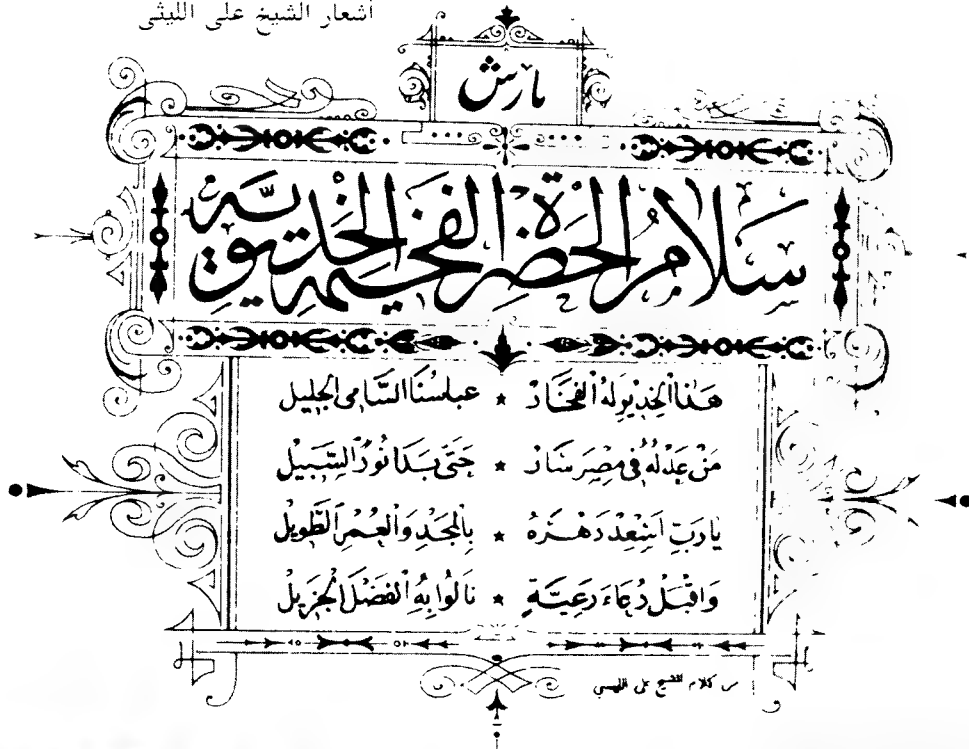 أشعار الشيخ على الليثى
مارش
سَلَامُ الحَضْرَةِ الفَخيمَةِ الخِدِيويَّة
هَذَا الْخِدِيوِ لَهُ الْفَخَارْ * عباسُنَا السَّامِى الجَليل
مَنْ عَدْلُهُ فِى مِصرَ سَارْ * حَتَّى بَدَا نُورُ السَّبِيْل
يَا رَبِّ اَسْعِدْ دَهْرَهُ * بِالمَجْدِ وَالْعُمْرِ الطَّوِيلْ
وَاقْبَلْ دُعَاءَ رَعِيَّةٍ * نَالُوا بِهِ الْفَضْلَ الْجَزِيلْ
من كلام الشيخ على الليثى